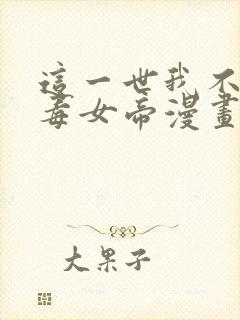 這一世我不
毒女帝漫畫
大果子